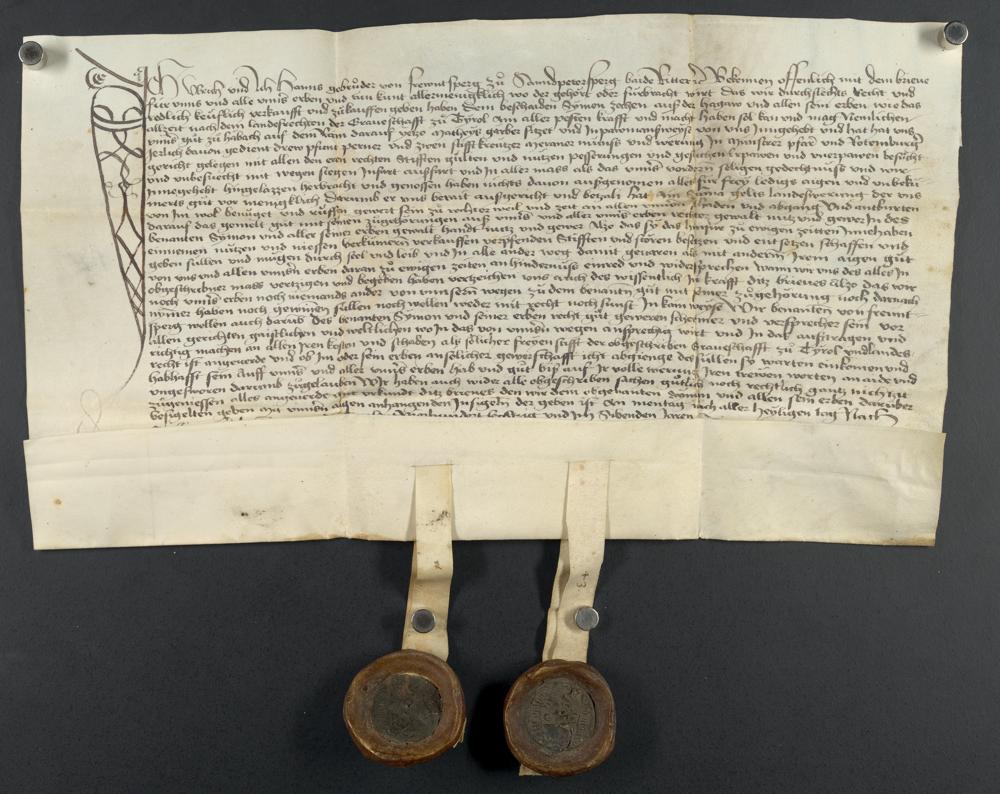 Ich Ulrich und Ich Hanns gebrůder von frewntsperg zů Sanndpetersperg baide Ritter Bekennen offenlich mit dem brieue
für vnns vnd alle vnnser erben vnd tun kunt allermenigklich wo der gehört oder fürbracht wirt Das wir durchslechts Recht vnd
redlich keuflich verkaufft vnd zukauffen geben haben Dem beschaiden Symon zehen auf der hagaw vnd allen sein erben wie das
allzeit nach dem landesrechten der Graueschafft zu Tyrol am aller pesten krafft vnd macht haben sol kan vnd mag Nemlichen
vnnser gůt zu habach auf dem Rain darauf yetzo Matheys garber sitzet vnd Inpawmanswyse von vns Inngehebt vnd hat hat vnns
Jerlich dauon gedient drew pfunt perner vnd zwen stifft kreutzer meraner münnss vnd werung In Münstrer pfarr vnd Rotemburg
gericht gelegen mit allen den eren rechten Stifften gülten vnd nutzen pesserungen vnd gesuchen erpawen vnd vnerpawen besůcht
vnd vnbesuecht mit wegen stegen Infart ausfart vnd In aller mass als das vnnser vordern säligen gedechtnüss vnd wir
Innegehebt hingelazzen herbracht vnd genossen haben nichts dauon ausgenomen alles für frey ledigs aigen vnd vnbekü
merts gůt vor menigklich Darumb er vns berait ausgericht vnd bezalt hat ain Suma gelts landeswerung der vns
von Im wol benüget vnd
darauf das gemelt gůt mit seinen zůgehorungen aus vnnser vnd aller vnnser erben rechter gewalt nutz vnd gewer In des
benanten Symon vnd aller seiner erben gewalt handt nutz vnd gewer Also das sy das hinfür zu ewigen zeitten Innehaben
einnemen nützen vnd niessen verkümern verkauffen versetzen Stifften vnd stören besetzen vnd entsetzen schaffen vnd
geben süllen vnd mügen durch sel vnd leib vnd In alle ander weg damit gefaren als mit anderm Irem aigen gůt
von vns vnd allen vnnsern erben daran zu ewigen zeiten an hindernüss einred vnd widersprechen Wann wir vns des alles In
obgeschribner mass verzigen vnd begeben haben verzeichen vns auch des wissentlich In krafft ditz brieues Also das wir
noch vnnser erben noch niemands ander von vnnsern wegen zu dem benanten gůt mit seiner zůgehorung noch darnach
nymer haben noch gewinnen süllen noch wellen weder mit recht noch sunst In kain weyse Wir benanten von frewnt
sperg wollen auch darüb des benanten Symon vnd seiner erben recht gůt geweren schermer vnd versprecher sein vor
allen gerichten geistlichen vnd weltlichen wo In das von vnnsern wegen ansprechig wirt vnd In das austragen vnd
richtig machen an allen Iren kosten vnd schaden als sölicher freyen stifft der obgeschriben Graueschafft zu Tyrol vnd landes
recht ist angeuerde vnd ob Im oder sein erben an sölicher gewerschafft icht abgienge des süllen sy warten einkomen vnd
habhafft sein Auff vnnser vnd aller vnnser erben hab vnd gůt biss auf Ir volle werung Iren trewen worten an aide vnd
vngesworen darumb zůgelauben Wir haben auch wider alle obgeschriben sachen gütlich noch rechtlich gantz nicht zu
zůgeniessen alles angeuerde mit vrkundt ditz brieues den wir dem obgenanten Symon vnd allen sein erben darüber
besigelten geben mit vnnsern aigen anhangenden Insigeln der geben ist An montag nach aller heyligen tag Nach
Sibenden Jaren